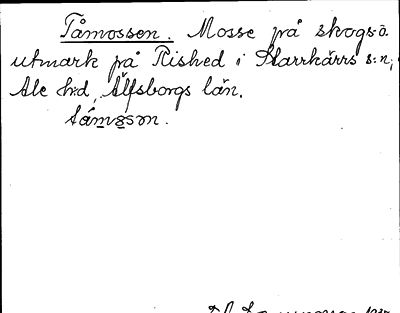 Tåmossen. Mosse på skogs o.
utmark på Rished i Starrkärrs s:n,
Ale h:d, Älfsborgs län.